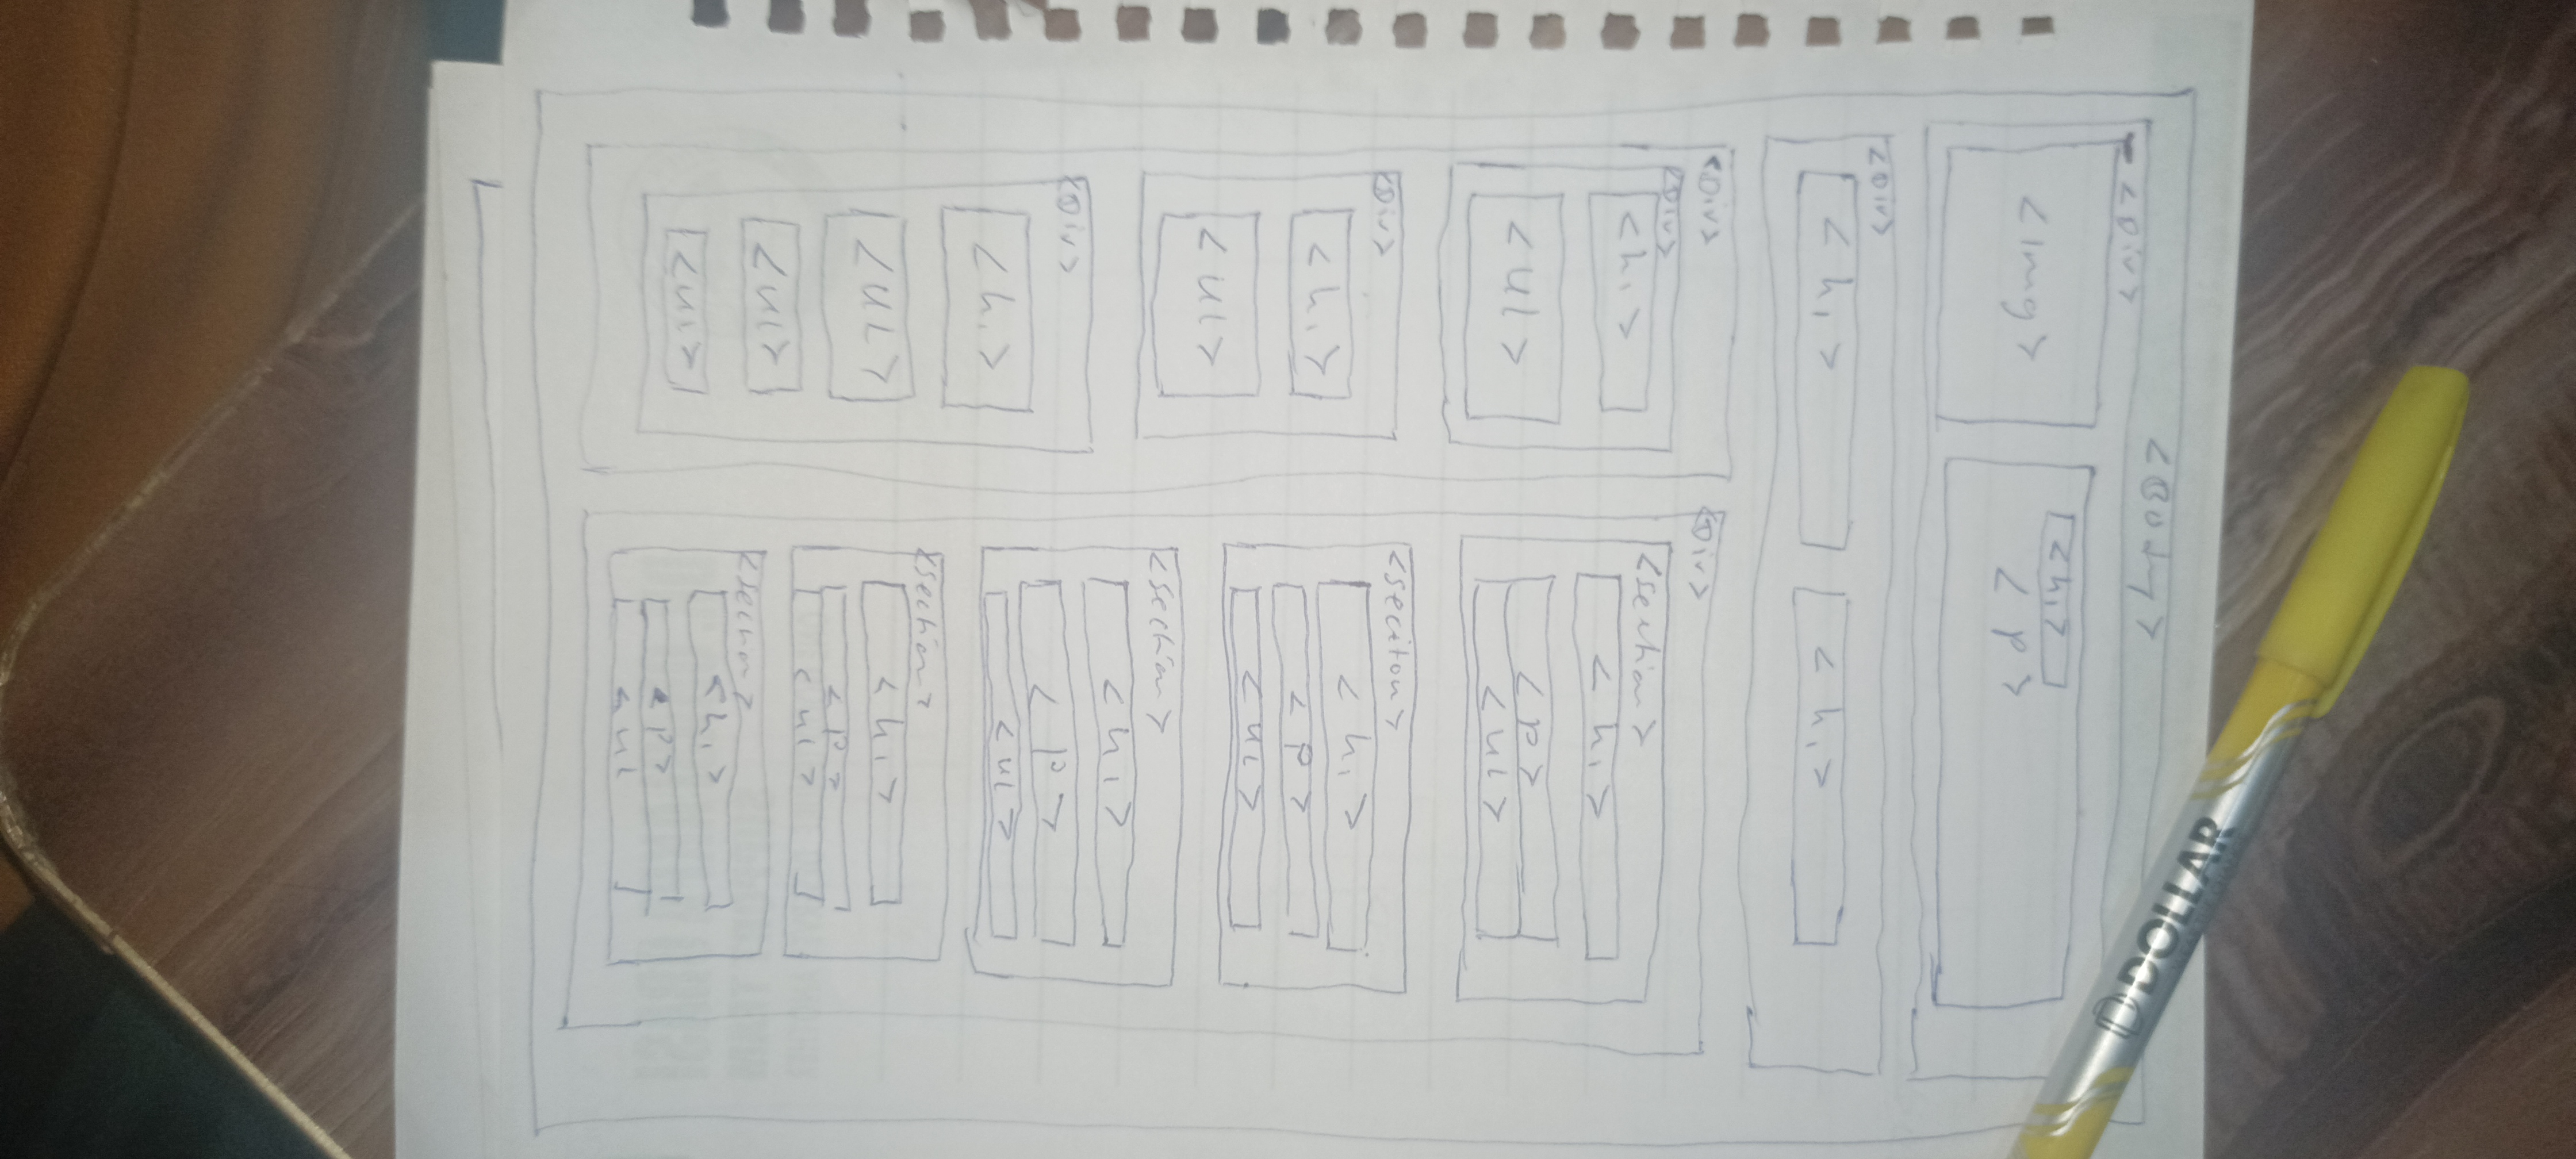 <BODY>
<Div>
<img>
<h1>
<p>
<Div>
<h1>
<h1>
<Div>
<Div>
<h1>
<ul>
<Div>
<h1>
<ul>
<Div>
<h1>
<ul>
<ul>
<ul>
<Div>
<section>
<h1>
<p>
<ul>
<seciton>
<h1>
<p>
<ul>
<section>
<h1>
<p>
<ul>
<section>
<h1>
<p>
<ul>
<section>
<h1>
<p>
<ul
DOLLAR